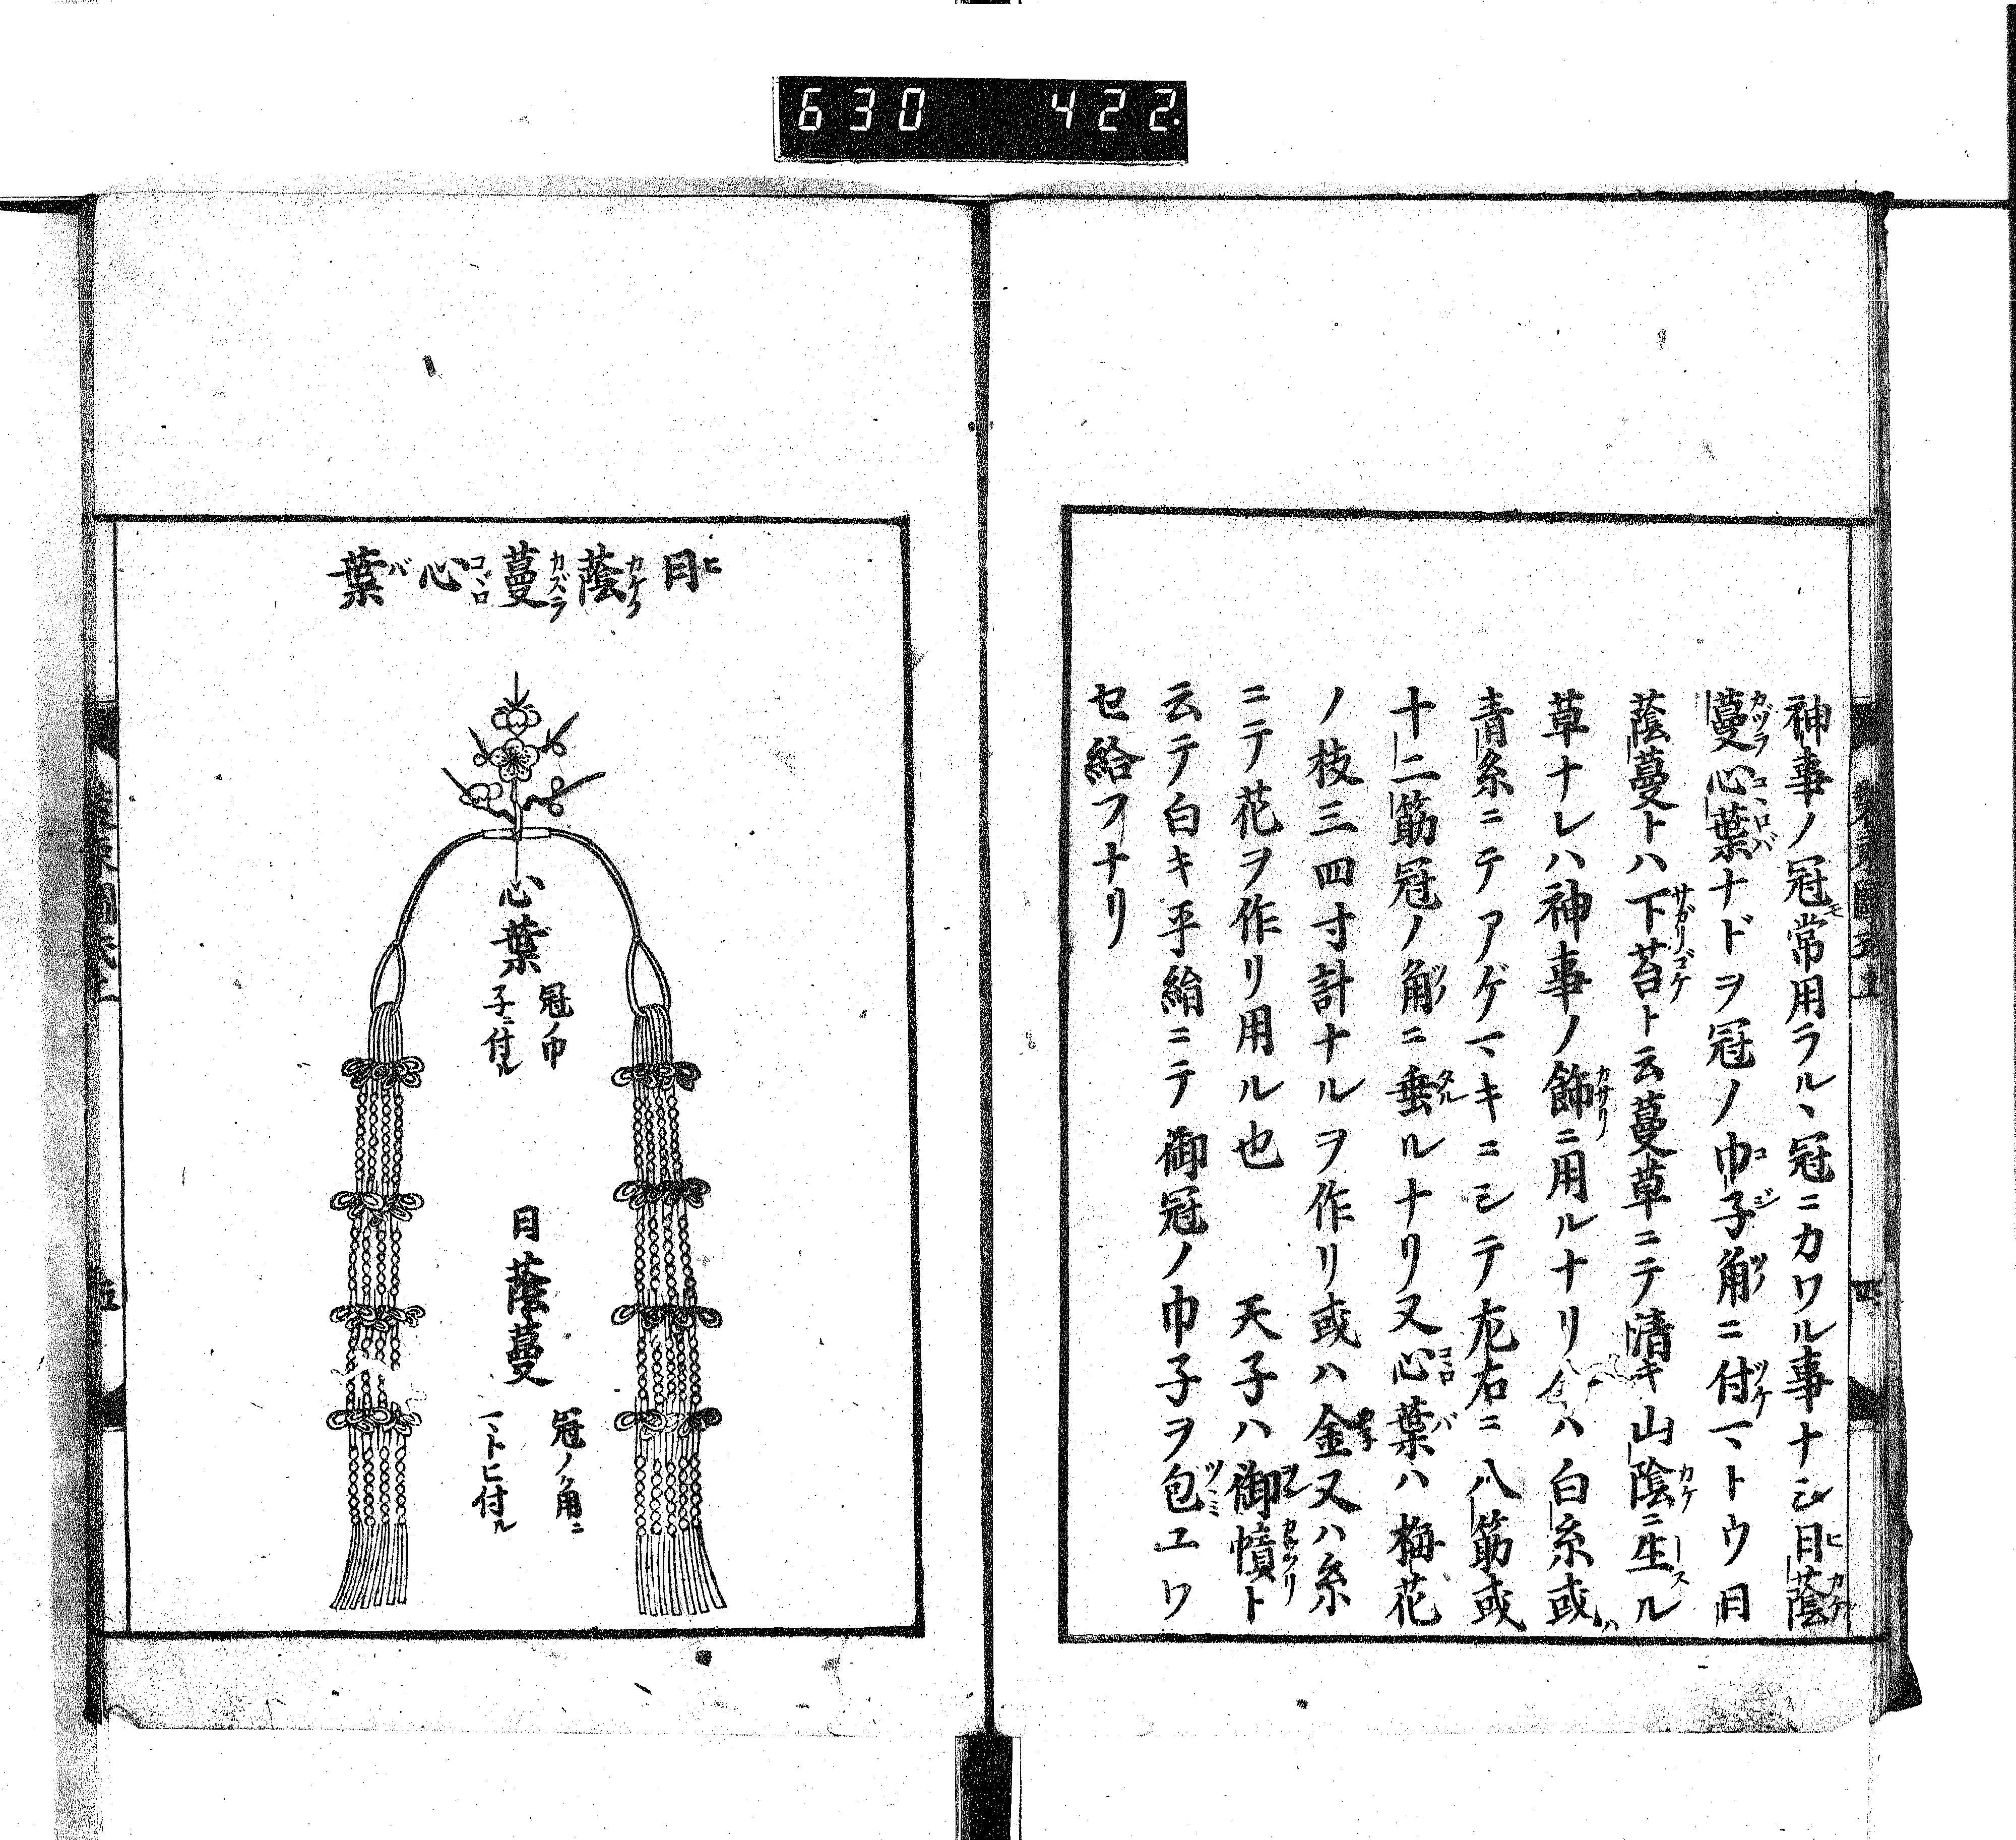 630 422
神事ノ冠モ常用ラル丶冠ニカワル事ナシ日蔭
蔓心葉ナドヲ冠ノ巾子角ニ付マトウ日
蔭蔓トハ下苔ト云蔓草ニテ清キ山陰ニ生ル
草ナレハ神事ノ飾ニ用ルナリ今ハ白糸或ハ
青糸ニテアゲマキニシテ左右ニ八筋或
十二筋冠ノ角ニ垂ルナリ又心葉ハ梅花
ノ枝三四寸計ナルヲ作リ或ハ金又ハ糸
ニテ花ヲ作リ用ル也 天子ハ御幘ト
云テ白キ平絹ニテ御冠ノ巾子ヲ包ユワ
セ給フナリ
日蔭蔓心葉
心葉
冠ノ巾
子ニ付ル
日蔭蔓
冠ノ角ニ
マトヒ付ル